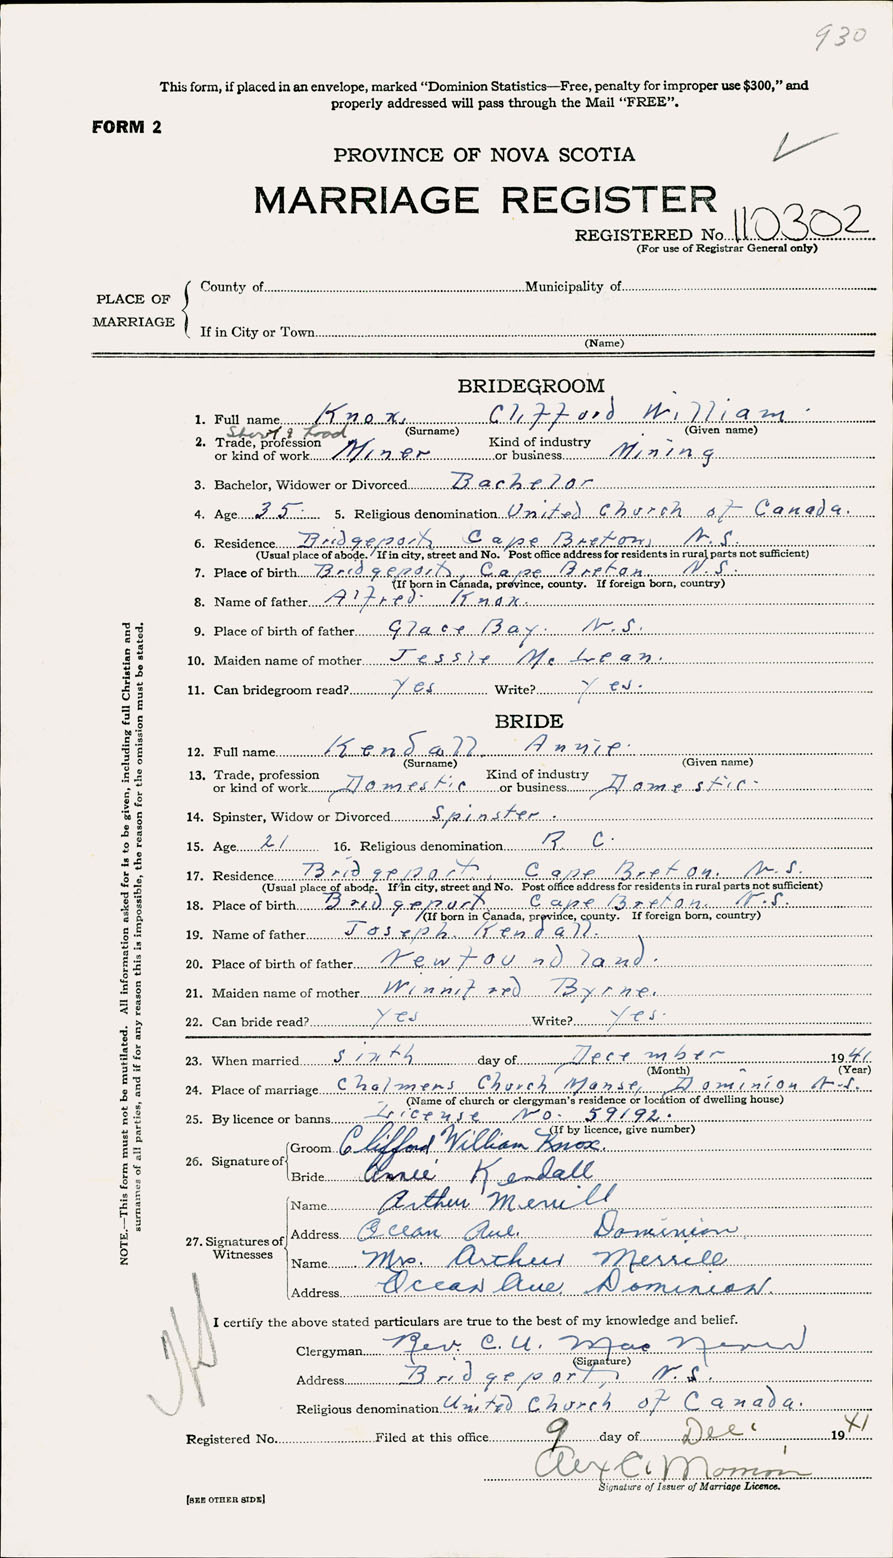 930
This form, if placed in an envelope, marked “Dominion Statistics—Free, penalty for improper use $300,” and
properly addressed will pass through the Mail “FREE”.
FORM 2
PROVINCE OF NOVA SCOTIA
MARRIAGE REGISTER
REGISTERED No. 110302
(For use of Registrar General only)
PLACE OF MARRIAGE
County of Municipality of
If in City or Town
(Name)
BRIDEGROOM
1. Full name Knox, Clifford William.
(Surname) (Given name)
2. Trade, profession or kind of work Miner Kind of industry or business Mining
3. Bachelor, Widower or Divorced Bachelor
4. Age 35. 5. Religious denomination United Church of Canada.
6. Residence Bridgeport, Cape Breton, N.S.
(Usual place of abode. If in city, street and No. Post office address for residents in rural parts not sufficient)
7. Place of birth Bridgeport, Cape Breton N.S.
(If born in Canada, province, county. If foreign born, country)
8. Name of father Alfred Knox.
9. Place of birth of father Glace Bay. N.S.
10. Maiden name of mother Jessie McLean.
11. Can bridegroom read? Yes Write? Yes.
BRIDE
12. Full name Kendall Annie.
(Surname) (Given name)
13. Trade, profession or kind of work Domestic Kind of industry or business Domestic.
14. Spinster, Widow or Divorced Spinster.
15. Age 21 16. Religious denomination R. C.
17. Residence Bridgeport, Cape Breton. N.S.
(Usual place of abode. If in city, street and No. Post office address for residents in rural parts not sufficient)
18. Place of birth Bridgeport Cape Breton. N.S.
(If born in Canada, province, county. If foreign born, country)
19. Name of father Joseph Kendall.
20. Place of birth of father Newfoundland.
21. Maiden name of mother Winnifred Byrne.
22. Can bride read? Yes Write? Yes.
23. When married sixth day of December 1941
(Month) (Year)
24. Place of marriage Chalmers Church Manse, Dominion N.S.
(Name of church or clergyman's residence or location of dwelling house)
25. By licence or banns License No. 59192.
(If by licence, give number)
26. Signature of Groom Clifford William Knox.
Bride Annie Kendall
27. Signatures of Witnesses
Name Arthur Merrill
Address Ocean Ave. Dominion
Name Mrs. Arthur Merrill
Address Ocean Ave Dominion.
I certify the above stated particulars are true to the best of my knowledge and belief.
Clergyman Rev. C. U.
(Signature)
Address Bridgeport, N.S.
Religious denomination United Church of Canada.
Registered No. Filed at this office 9 day of Dec. 1941
Signature of Issuer of Marriage Licence.
[SEE OTHER SIDE]
NOTE.—This form must not be mutilated. All information asked for is to be given, including full Christian and
surnames of all parties, and if for any reason this is impossible, the reason for the omission must be stated.